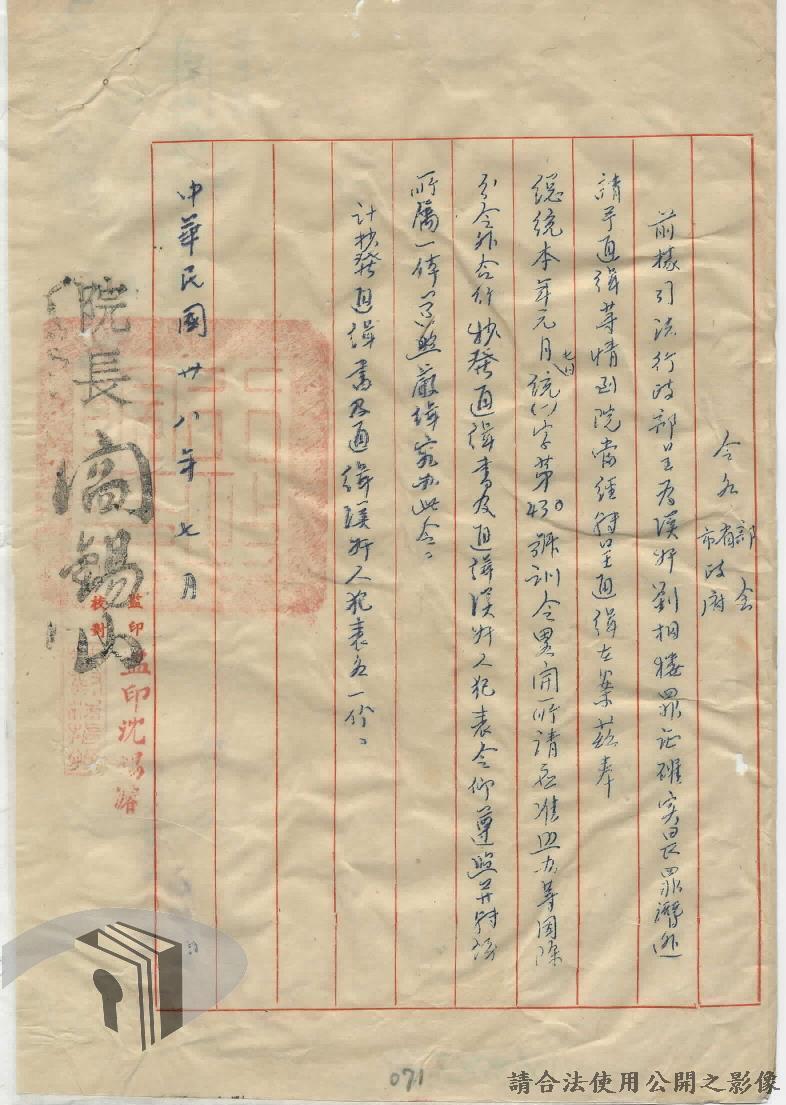 令各部會省市政府
前據司法行政部呈為漢奸劉相樓罪證確實畏罪潛逃
請予通緝等情到院當經轉呈通緝在案茲奉
總統本年元月七日統(八)字第430號訓令略開所請應准照辦等因除
分令外合行抄發通緝書及通緝漢奸人犯表令仰遵照并轉飭
所屬一体遵照嚴緝究办此令。
計抄發通緝書及通緝漢奸人犯表各一份。
中華民國卅八年七月
院長閻錫山
監印
校對
監印沈
071
請合法使用公開之影像